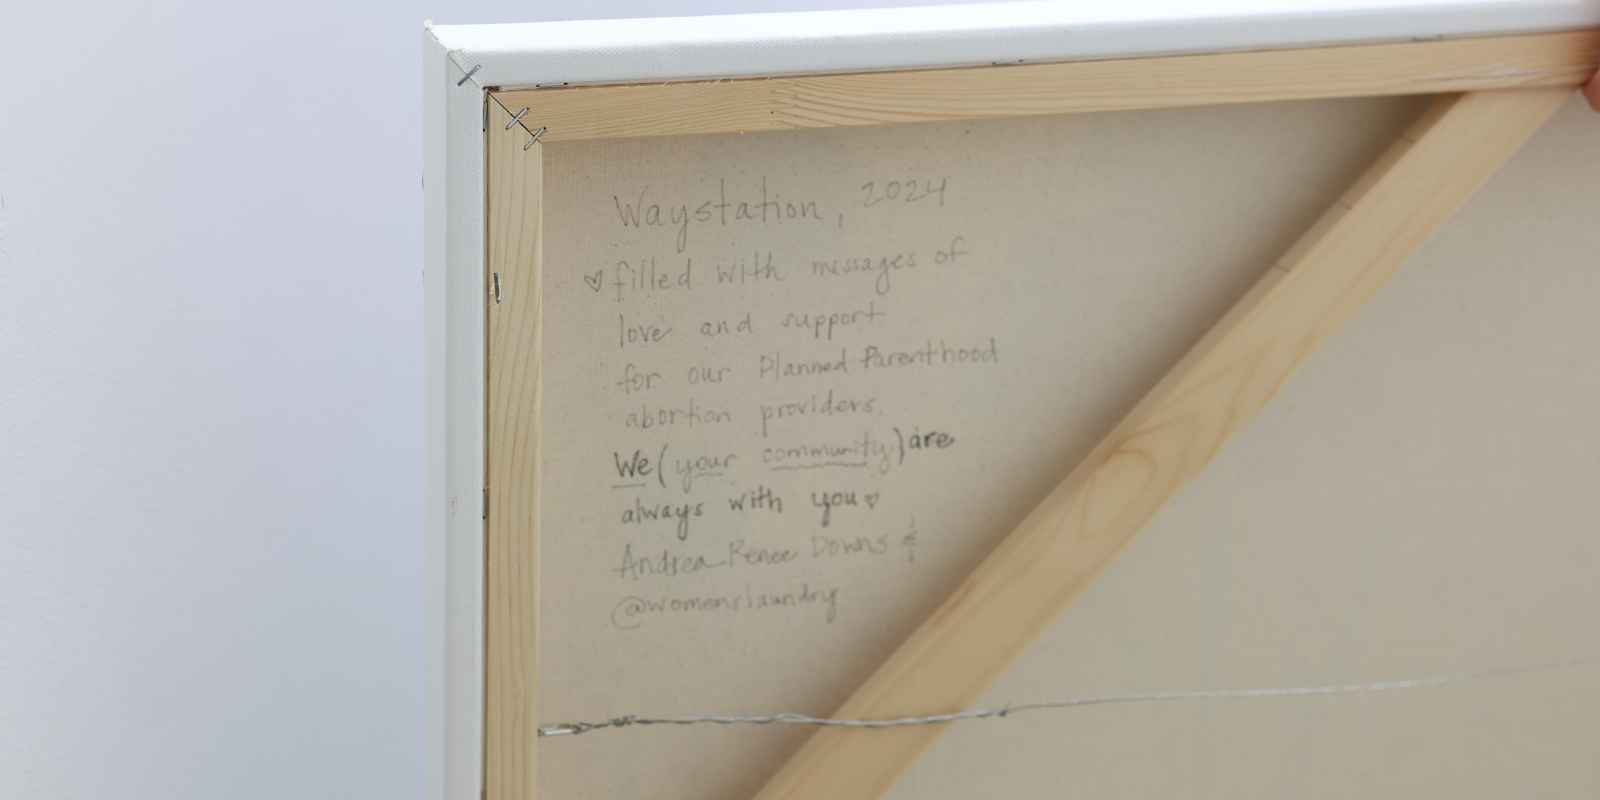 Waystation, 2024
♡ filled with messages of
love and support
for our Planned Parenthood
abortion providers.
We (your community) are
always with you ♡
Andrea Renee Downs &
@womenslaundry